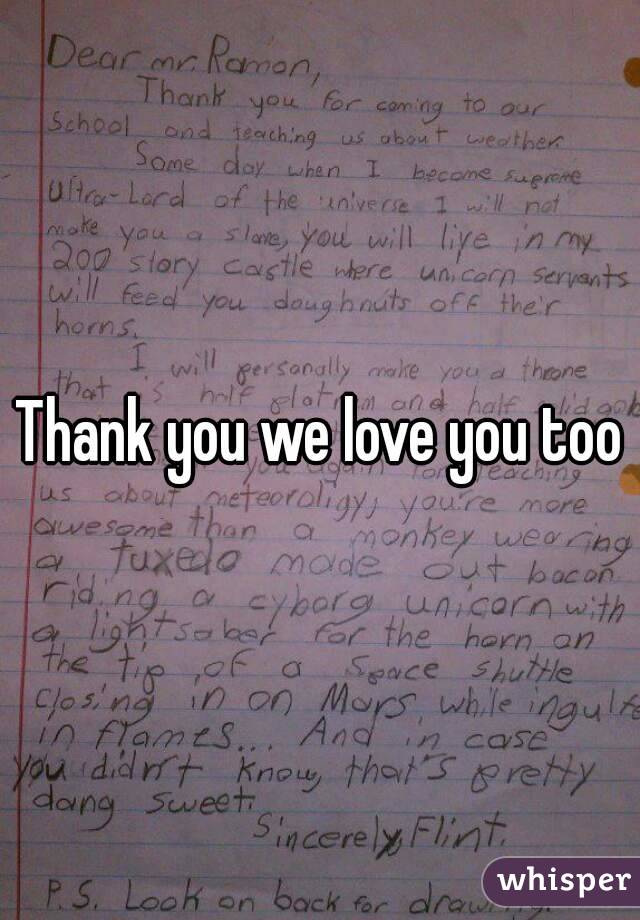 Dear mr. Ramon,
Thank you for coming to our
School and teaching us about weather.
Some day when I become supreme
Ultra-Lord of the universe I will not
make you a slave, you will live in my
200 story castle where unicorn servants
will feed you doughnuts off their
horns.
I will personally make you a throne
that is half platnum and half
Thank you we love you too
you again for teaching
us about meteoroligy, you're more
awesome than a monkey wearing
a tuxedo made out bacon
riding a cyborg unicorn with
a lightsaber for the horn on
the tip of a space shuttle
closing in on Mars while ingulfed
in flames... And in case
you didn't know, that's pretty
dang sweet.
Sincerely, Flint.
P.S. Look on back for drawing.
whisper